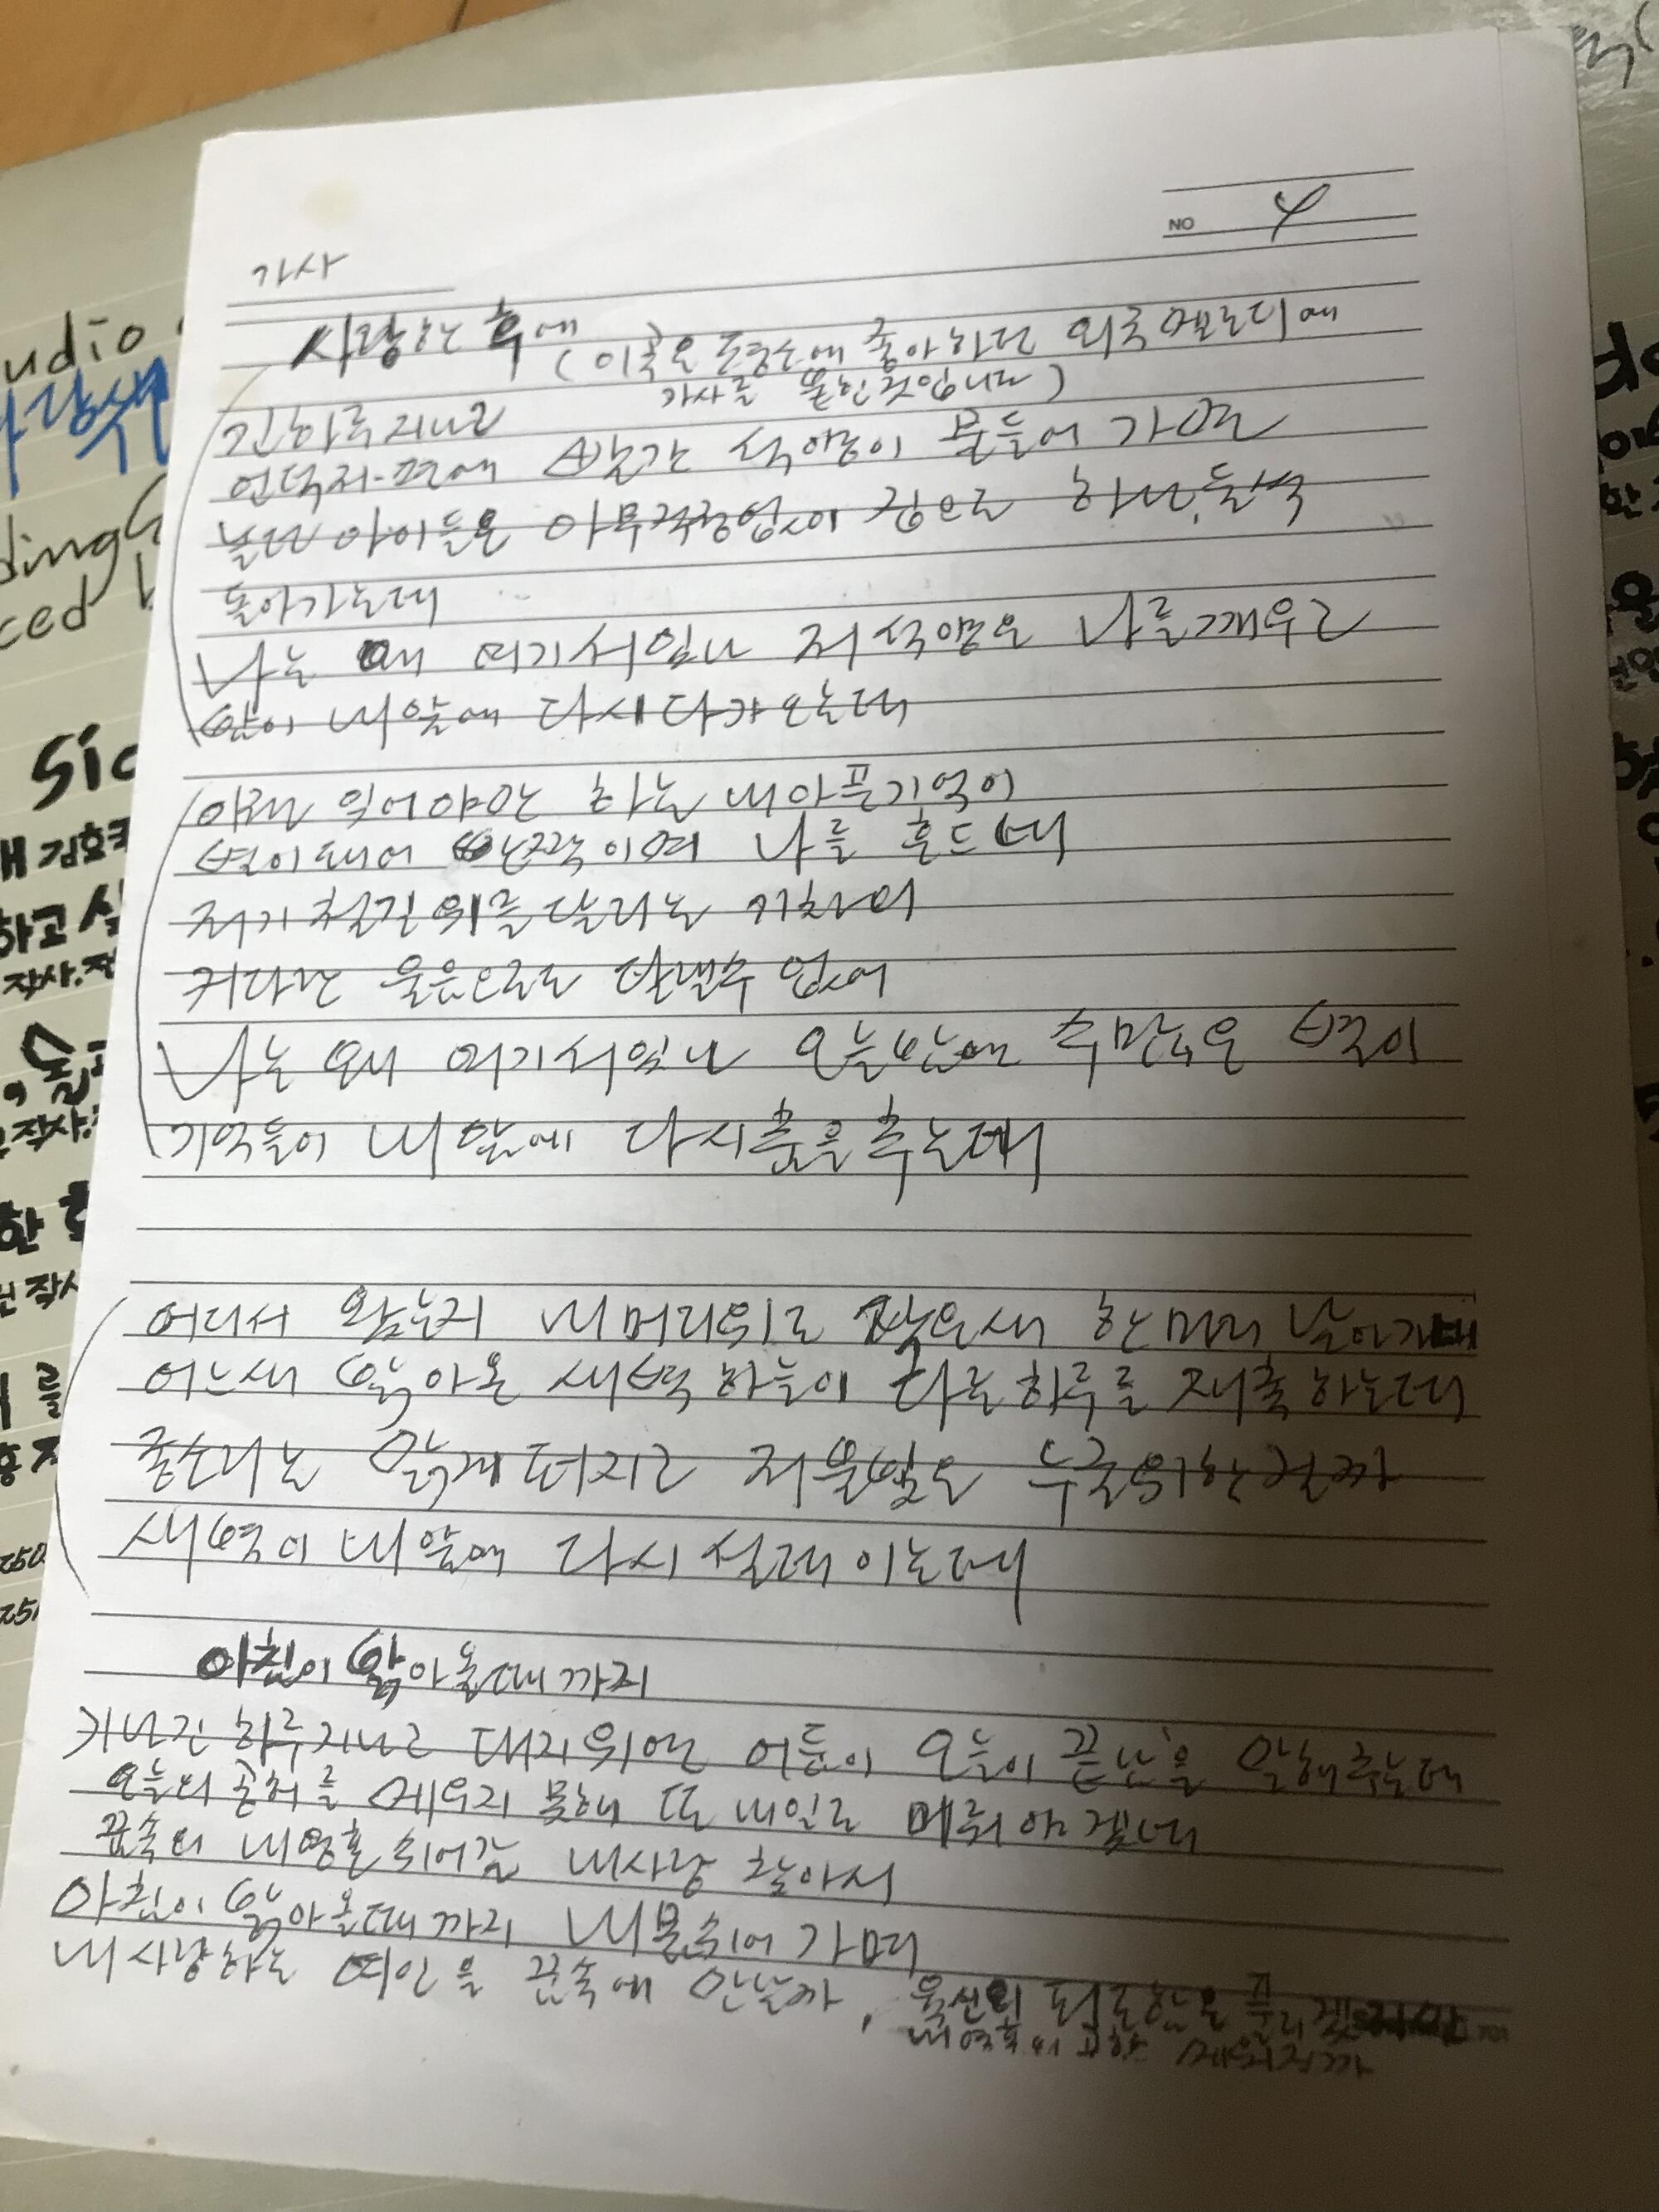 NO 4
가사
사랑한 후에
(이곡은 평소에 좋아하던 외국멜로디에
가사를 붙힌것입니다)
긴하루지나고
언덕저편에 빨간 석양이 물들어 가면
놀던 아이들은 아무걱정없이 집으로 하나,둘씩
돌아가는데
나는 왜 여기서있나 저 석양은 나를깨우고
밤이 내앞에 다시다가오는데
이젠 잊어야만 하는 내아픈기억이
별이되어 반짝이며 나를 흔드네
저기 철길위를달리는 기차의
커다란 울음으로도 달랠수 없어
나는 왜 여기서있나 오늘밤에 수많은 별이
기억들이 내앞에 다시춤을추는데
어디서 왔는지 내머리위로 작은새 한마리 날아가네
어느새 밝아온 새벽하늘이 다른하루를 재촉하는데
종소리는 맑게퍼지고 저불빛은 누굴위한걸까
새벽이 내앞에 다시 설레이는데
아침이 밝아올때까지
기나긴 하루지나고 대지위엔 어둠이 오늘이 끝남을 말해주는데
오늘의 공허를 메우지 못해 또 내일로 메워야겠네
꿈속의 내영혼 쉬어갈 내사랑 찾아서
아침이 밝아올때까지 내몸쉬어 가며
내사랑하는 여인을 꿈속에 만날까, 육신의 피로함은 풀리겠지만
내영혼의 공허 메워질까
udio
ding
ced
Sid
김효
하고
작사.
작사
한
를
250
251